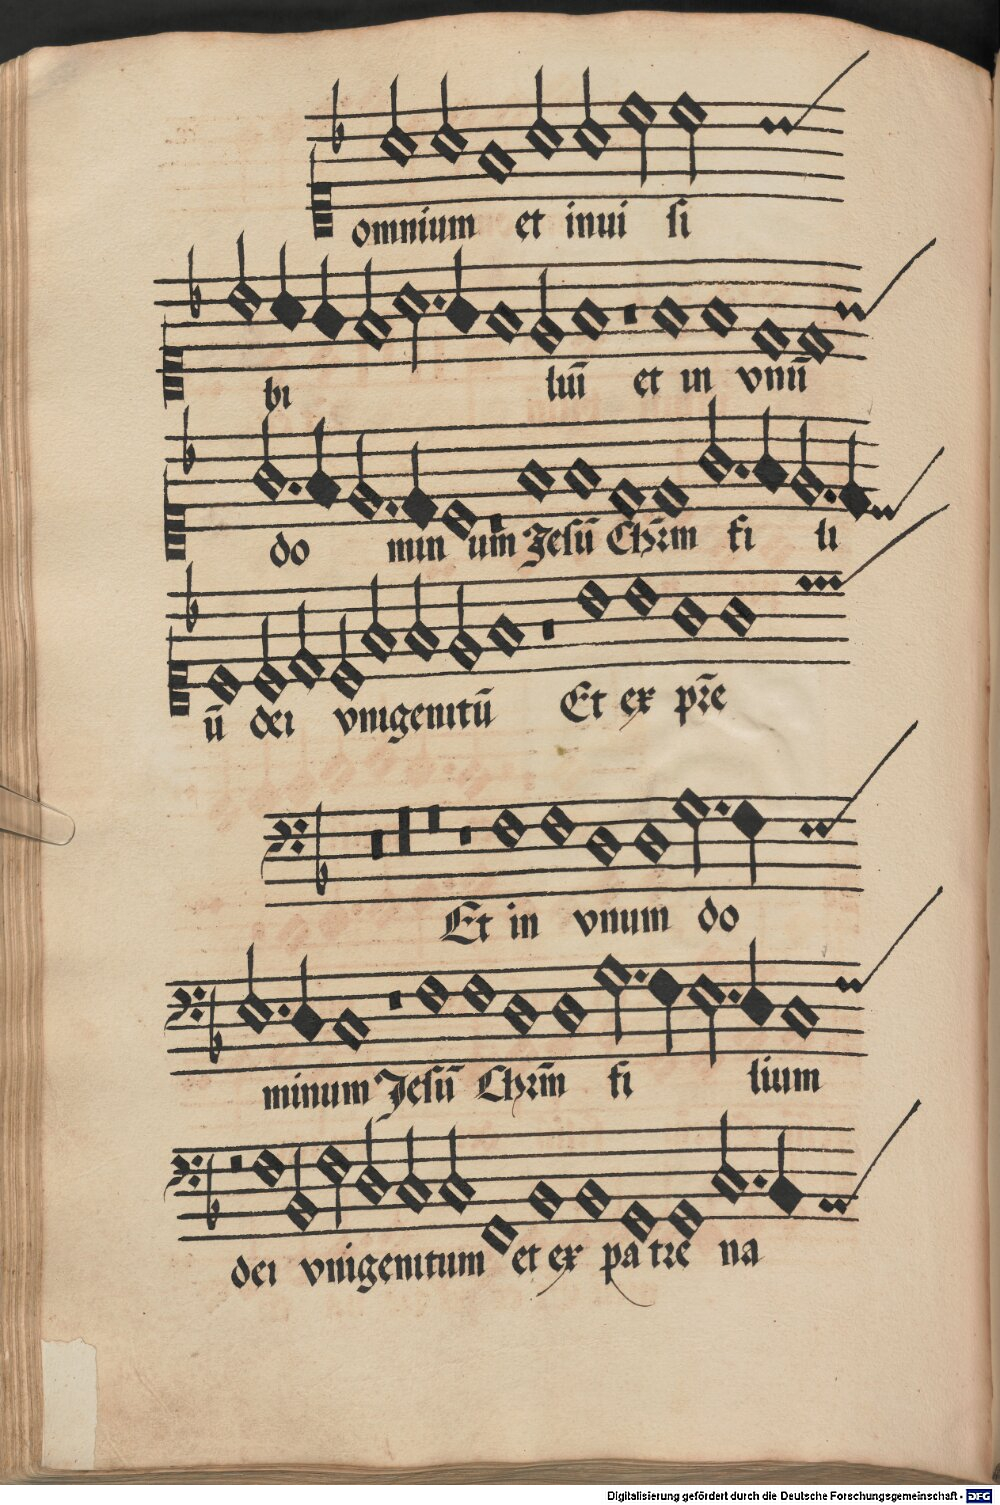 omnium et inui si
bi liū et in vnū
do min um Jesū Chr̄m fi li
ū dei vnigenitū Et ex pr̄e
Et in vnum do
minum Jesū Chr̄m fi lium
dei vnigenitum et ex pa tre na
Digitalisierung gefördert durch die Deutsche Forschungsgemeinschaft - DFG